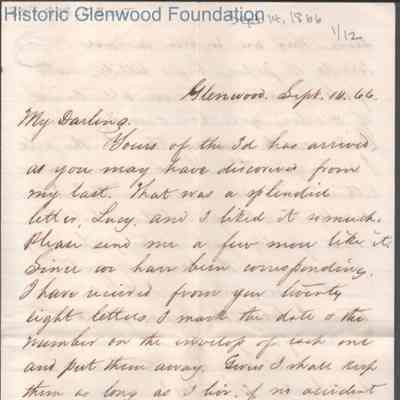 Historic Glenwood Foundation
Sept 14, 1866
1/12
Glenwood. Sept. 14. 66.
My Darling.
Yours of the 3d has arrived,
as you may have discovered from
my last. That was a splendid
letter, Lucy, and I liked it so much.
Please send me a few more like it.
Since we have been corresponding,
I have recieved from you twenty
eight letters. I mark the date & the
number on the envelop of each one
and put them away. I shall keep
them as long as I live, if no accident